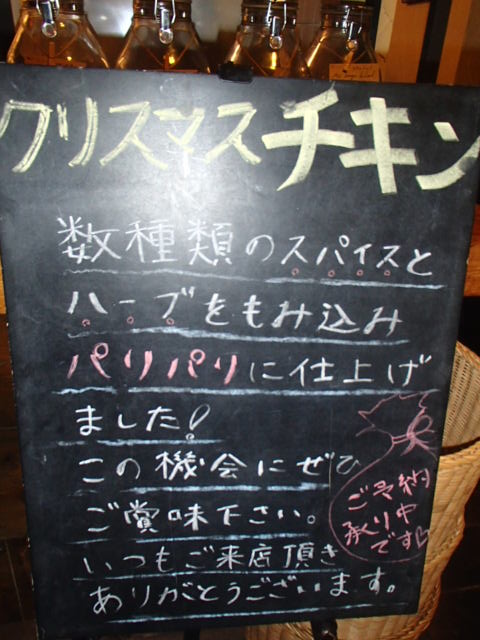 クリスマスチキン
数種類のスパイスと
ハーブをもみ込み
パリパリに仕上げ
ました!
この機会にぜひ
ご賞味下さい。
いつもご来店頂き
ありがとうございます。
ご予約
承り中
です♡